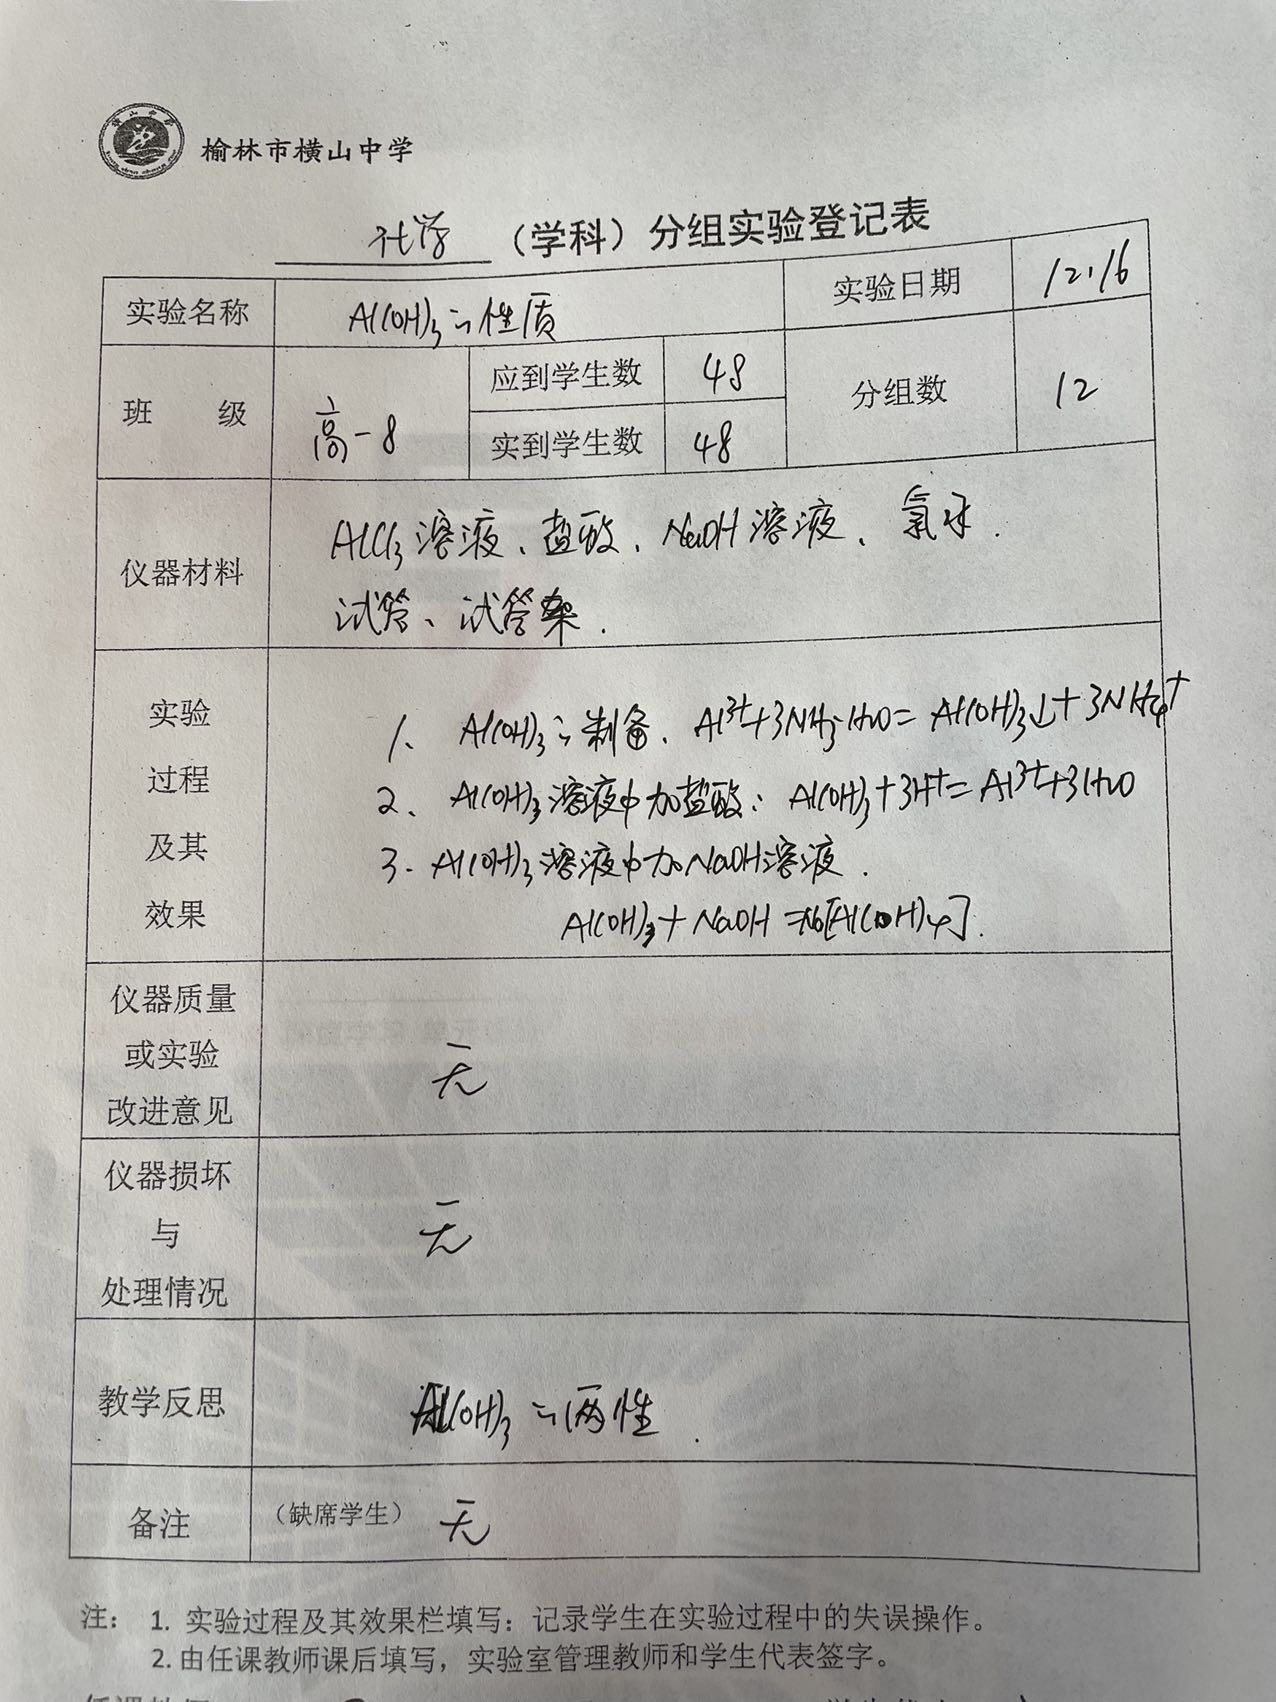 榆林市横山中学
化学 （学科）分组实验登记表
实验名称 Al(OH)₃的性质 实验日期 12.16
班 级 高一8 应到学生数 48 分组数 12
实到学生数 48
仪器材料 AlCl₃溶液、盐酸、NaOH溶液、氨水.
试管、试管架.
实验
过程
及其
效果
1、Al(OH)₃的制备. Al³⁺+3NH₃·H₂O= Al(OH)₃↓+3NH₄⁺
2、Al(OH)₃溶液中加盐酸: Al(OH)₃+3H⁺=Al³⁺+3H₂O
3. Al(OH)₃溶液中加NaOH溶液.
Al(OH)₃+NaOH=Na[Al(OH)₄].
仪器质量
或实验
改进意见
无
仪器损坏
与
处理情况
无
教学反思 Al(OH)₃的两性.
备注 （缺席学生） 无
注： 1. 实验过程及其效果栏填写：记录学生在实验过程中的失误操作。
2. 由任课教师课后填写，实验室管理教师和学生代表签字。